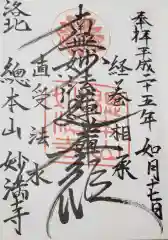 奉拝 平成二十五年 如月十七日
経巻相承
南無妙法蓮華経
直受法水
洛北
總本山 妙満寺